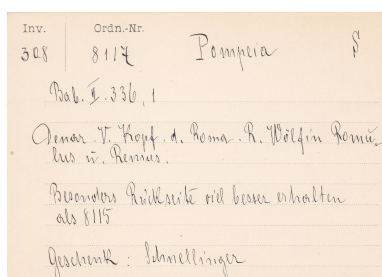 Inv. Ordn.-Nr.
308 8117 Pompeia S
Bab. II. 336, 1
Denar. V. Kopf. d. Roma. R. Wölfin Romu-
lus u. Remus.
Besonders Rückseite viel besser erhalten
als 8115
Geschenk : Schnellinger